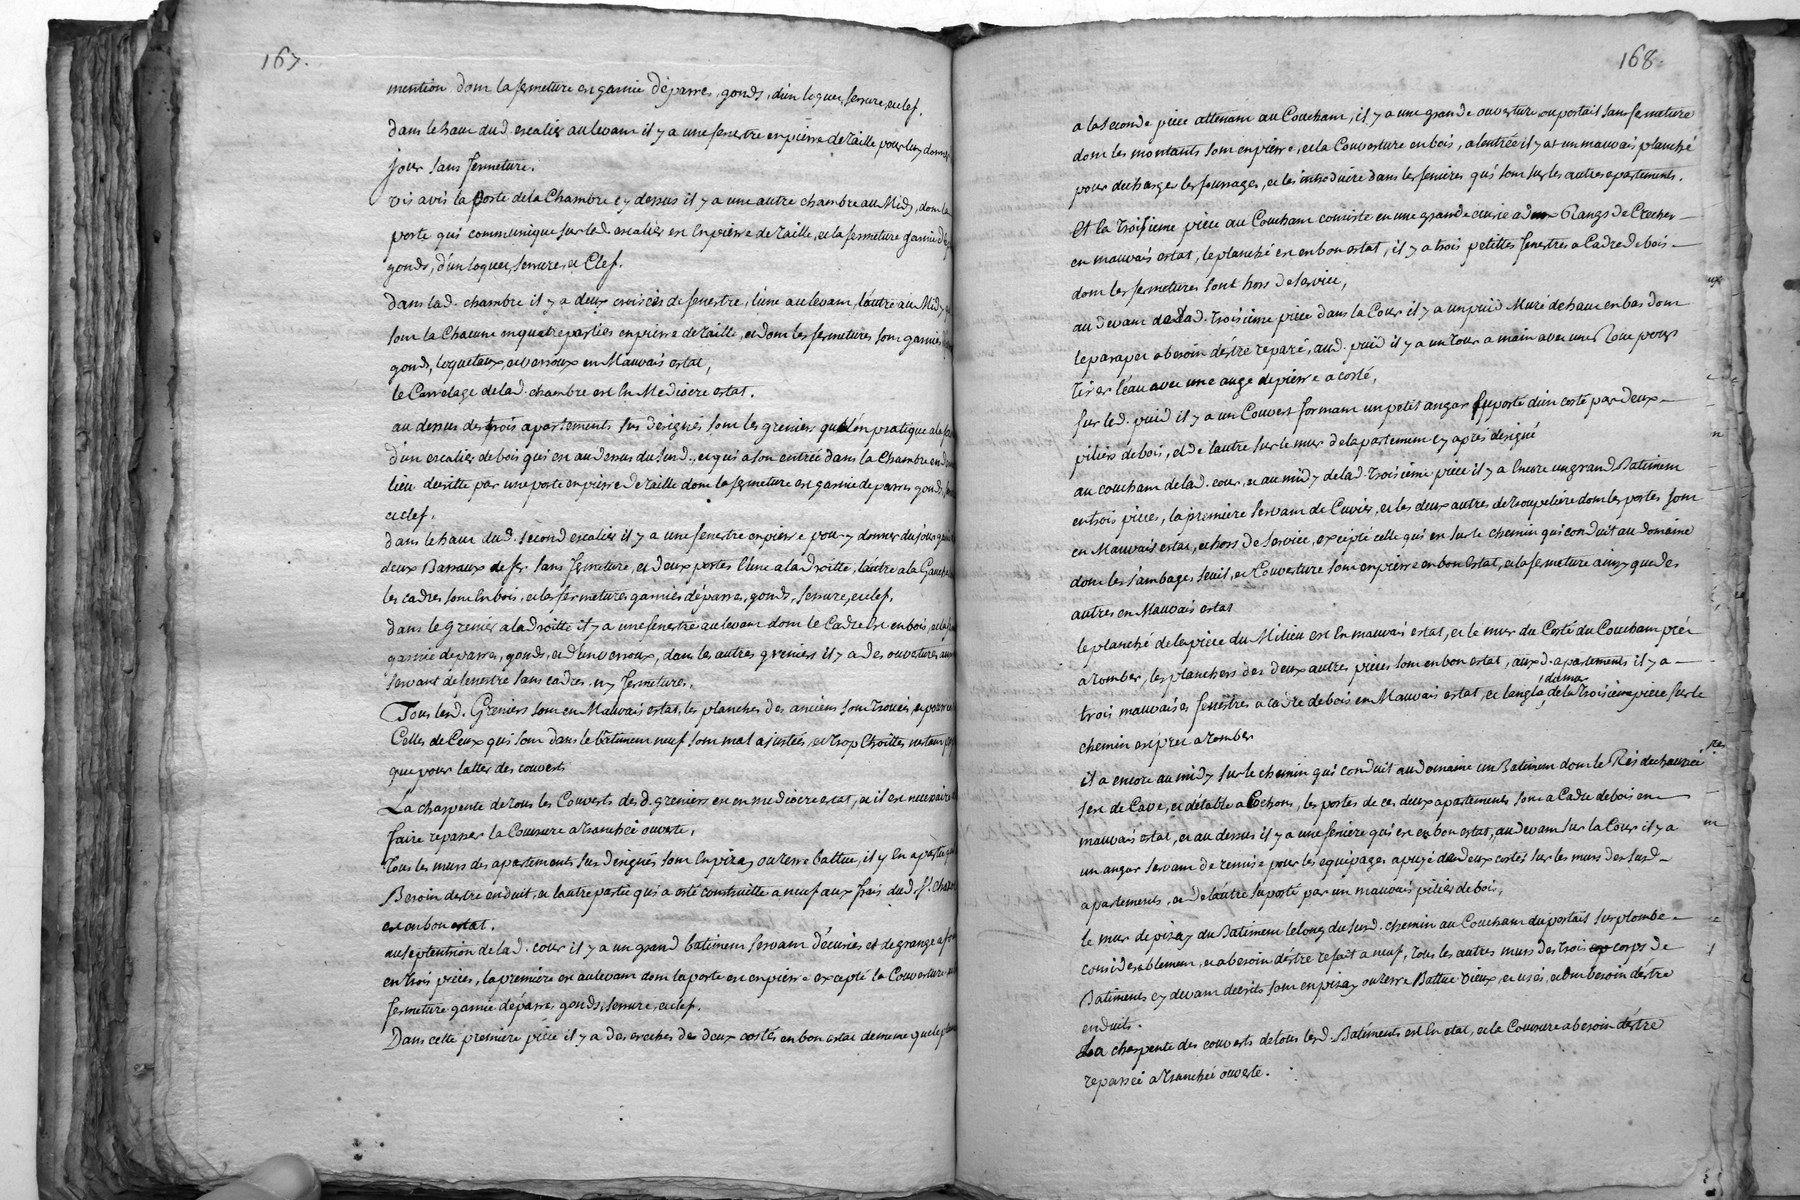 167.
mention dont la fermeture est garnie d'éparres, gonds, d'un loquet, serrure, et clef.
dans le haut dud. escalier au levant il y a une fenestre en pierre de taille pour luy donner
jour sans fermeture.
vis avis la porte de la Chambre cy dessus il y a une autre chambre au Midy, dont la
porte qui communique sur led. escalier est En pierre de taille, et la fermeture garnie
gonds, d'un loquet, serrure, et Clef.
dans lad. chambre il y a deux croisées de fenestre, l'une au levant, l'autre au Midy
sont la Chacune en quatre parties en pierre de taille, et dont les fermetures sont garnies
gonds, loquetaux, et verroux en Mauvais estat,
le Carrelage de lad. chambre est En Mediocre estat.
au dessus des trois apartements sus designés sont les greniers que l'on pratique a la
d'un escalier de bois qui est au dessus du susd., et qui a son entrée dans la Chambre en
lieu décritte par une porte en pierre de taille dont la fermeture est garnie deparres gonds,
et clef.
dans le haut dud. second escalier il y a une fenestre en pierre pour y donner du jour
deux Barraux de fer sans fermeture, et deux portes l'une a la Droitte, l'autre a la Gauche
les cadres sont En bois, et les fermetures garnies déparres, gonds, serrure, et clef.
dans le grenier a la droitte il y a une fenestre au levant dont le Cadre est en bois, et la
garnie deparres, gonds, et d'un verroux, dans les autres greniers il y a des ouvertures
servant de fenestre sans cadres, ny fermetures.
Tous lesd. Greniers sont en Mauvais estat, les planches des anciens sont trouées, et pourries
Celles de Ceux qui sont dans le bâtiment neuf sont mal ajustées, et trop Etroittes
que pour latter des couverts
La charpente de tous les Couverts desd. greniers est en mediocre estat, et il est necessaire
faire repasser la Couverture a tranchée ouverte,
tous les murs des apartements sus designés sont En pizay ou terre battue, il y En a partie
Besoin destre enduit, et l'autre partie qui a esté construitte a neuf aux frais dud. Sr.
est en bon estat.
au septentrion de lad. cour il y a un grand batiment servant d'écuries et de grange
en trois pieces, la première est au levant dont la porte est en pierre excepté la Couverture
fermeture garnie déparres, gonds, serrure, et clef.
Dans cette première pièce il y a des creches des deux costés en bon estat de meme que le
168.
a la seconde piece attenant au Couchant, il y a une grande ouverture ou portail sans fermeture
dont les montants sont en pierre, et la Couverture en bois, a l'entrée il y a un mauvais planché
pour decharger les fourrages, et les introduire dans les fenieres qui sont sur les autres apartements.
Et la troisieme piece au Couchant consiste en une grande ecurie a deux Rangs de Creches
en mauvais estat, le planché est en bon estat, il y a trois petittes fenestres a Cadre de bois
dont les fermetures sont hors de service,
au devant de lad. troisième piece dans la Cour il y a un puid Muré de haut en bas dont
le parapet a besoin d'estre reparé, aud. puid il y a un tour a main avec une Roue pour
tirer l'eau avec une auge de pierre a costé,
sur led. puid il y a un Couvert formant un petit angar suporté d'un costé par deux
piliers de bois, et de l'autre sur le mur de l'apartement cy après designé
au couchant de lad. cour, et au midy de lad. troisième piece il y a Encore un grand Batiment
en trois pieces, la première servant de Cuvier, et les deux autres de toupeliere dont les portes sont
en Mauvais estat, et hors de service, excepté celle qui est sur le chemin qui conduit au domaine
dont les jambages seuil, et Couverture sont en pierre en bon Estat, et la fermeture ainsy que des
autres en Mauvais estat
le planché de la piece du Milieu est En mauvais estat, et le mur du Costé du Couchant prêt
a tomber, les planchers des deux autres pieces sont en bon estat, auxd. apartements il y a
trois mauvaises fenestres a cadre de bois en Mauvais estat, et l'angle du mur de la troisième piece sur le
chemin est pret a tomber
il a encore au midy sur le chemin qui conduit au domaine un Batiment dont le Rés de chaussée
sert de Cave, et d'étable a Cochons, les portes de ces deux apartements sont a Cadre de bois en
mauvais estat, et au dessus il y a une feniere qui est en bon estat, au devant sur la Cour il y a
un angar servant de remise pour les equipages apuyé des deux costés sur les murs des susd.
apartements, et de l'autre suporté par un mauvais pilier de bois,
le mur de pizay du Batiment le long du susd. chemin au Couchant du portail surplombe
considerablement, et a besoin d'éstre refait a neuf, tous les autres murs des trois corps de
Batiments cy devant decrits sont en pizay ou terre Battue vieux, et usés, et ont besoin d'éstre
enduits.
La charpente des couverts de tous lesd. Batiments est En etat, et la Couverture a besoin destre
repassée a tranchée ouverte.